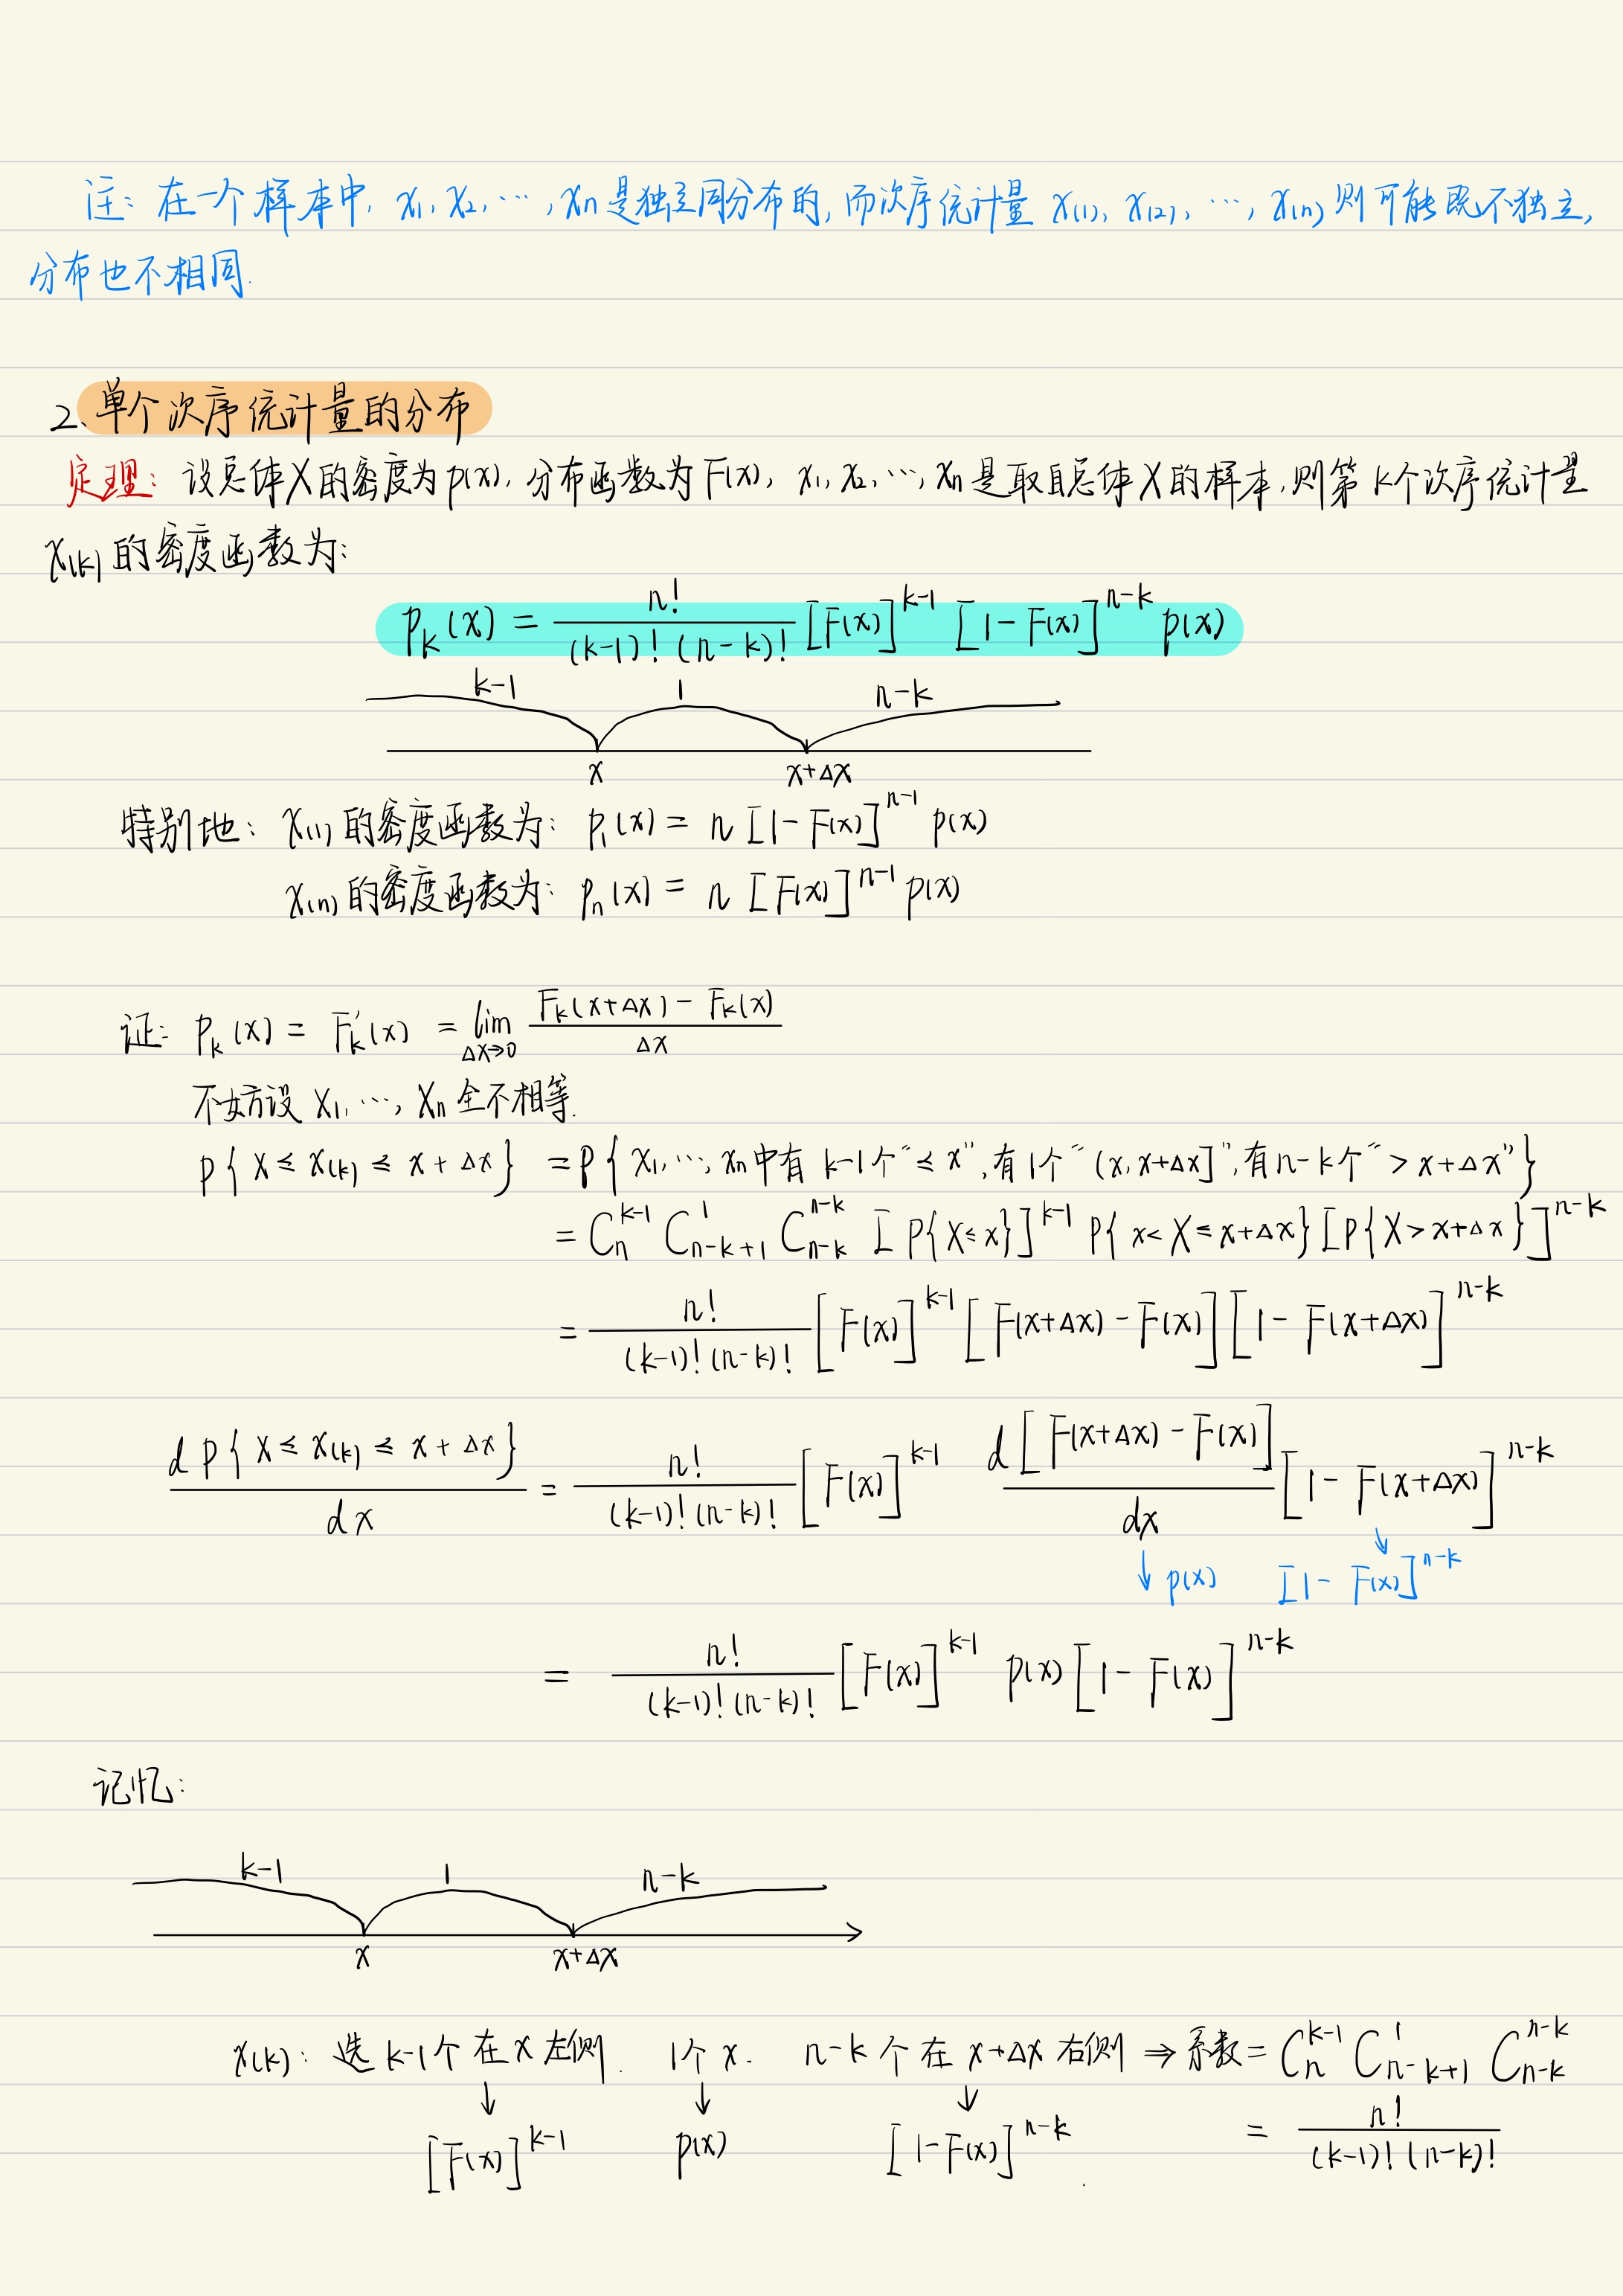 注: 在一个样本中, x₁, x₂, ⋯, xₙ 是独立同分布的, 而次序统计量 x₍₁₎, x₍₂₎, ⋯, x₍ₙ₎ 则可能既不独立,
分布也不相同.
2. 单个次序统计量的分布
定理: 设总体X的密度为p(x), 分布函数为F(x), x₁, x₂, ⋯, xₙ是取自总体X的样本, 则第k个次序统计量
x₍ₖ₎的密度函数为:
pₖ(x) = n!/((k-1)!(n-k)!) [F(x)]^(k-1) [1-F(x)]^(n-k) p(x)
k-1 1 n-k
x x+Δx
特别地: x₍₁₎的密度函数为: p₁(x) = n[1-F(x)]^(n-1) p(x)
x₍ₙ₎的密度函数为: pₙ(x) = n[F(x)]^(n-1) p(x)
证: pₖ(x) = Fₖ'(x) = lim_(Δx→0) (Fₖ(x+Δx) - Fₖ(x))/Δx
不妨设 x₁, ⋯, xₙ 全不相等.
P{x ≤ x₍ₖ₎ ≤ x+Δx} = P{x₁, ⋯, xₙ中有 k-1个"≤x", 有1个"(x, x+Δx]", 有n-k个">x+Δx"}
= C_n^(k-1) C_(n-k+1)^1 C_(n-k)^(n-k) [P{X≤x}]^(k-1) P{x<X≤x+Δx} [P{X>x+Δx}]^(n-k)
= n!/((k-1)!(n-k)!) [F(x)]^(k-1) [F(x+Δx) - F(x)] [1 - F(x+Δx)]^(n-k)
dP{x ≤ x₍ₖ₎ ≤ x+Δx}/dx = n!/((k-1)!(n-k)!) [F(x)]^(k-1) d[F(x+Δx) - F(x)]/dx [1 - F(x+Δx)]^(n-k)
↓ p(x) ↓ [1 - F(x)]^(n-k)
= n!/((k-1)!(n-k)!) [F(x)]^(k-1) p(x) [1 - F(x)]^(n-k)
记忆:
k-1 1 n-k
x x+Δx
x₍ₖ₎: 选 k-1个在x左侧. 1个x. n-k个在x+Δx右侧 ⇒ 系数 = C_n^(k-1) C_(n-k+1)^1 C_(n-k)^(n-k)
↓ ↓ ↓
[F(x)]^(k-1) p(x) [1-F(x)]^(n-k) = n!/((k-1)!(n-k)!)